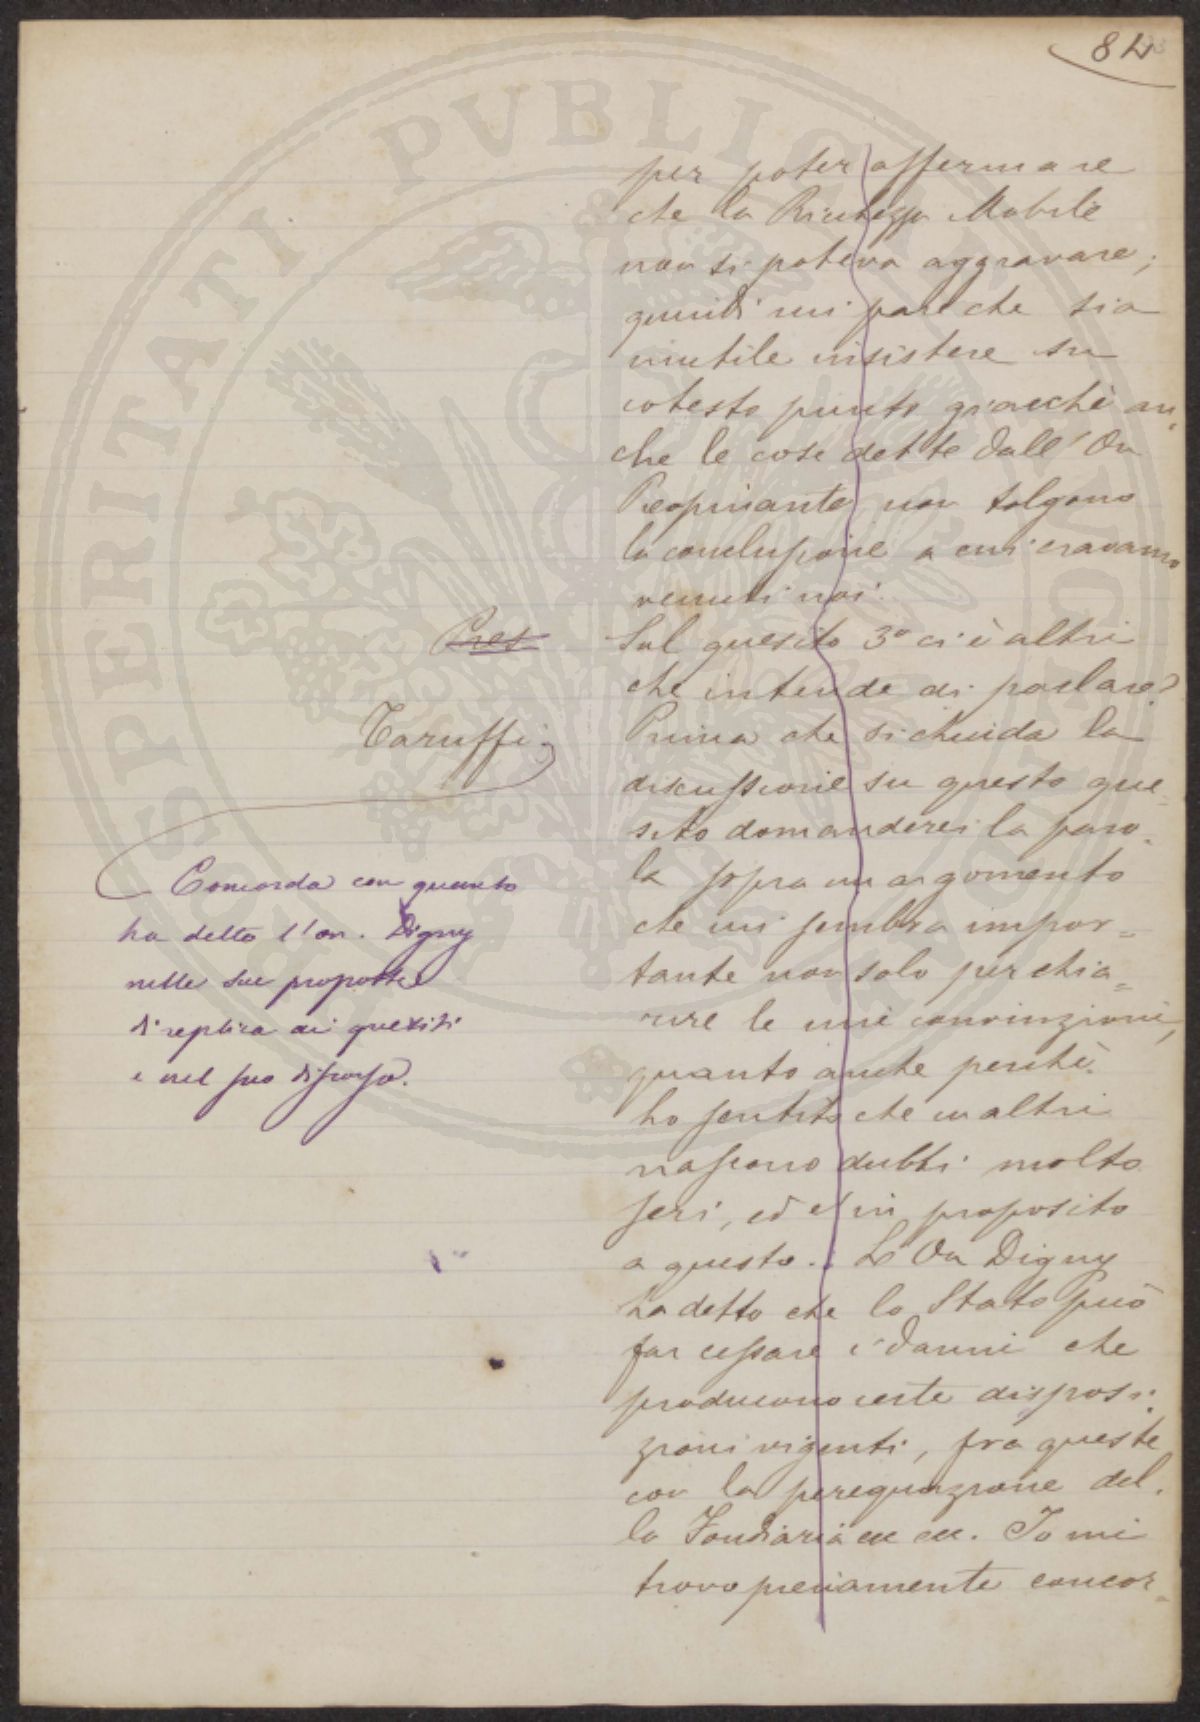 84
per poter affermare
che la Ricchezza Mobile
non si poteva aggravare;
quindi mi pare che sia
inutile insistere su
cotesto punto giacchè an-
che le cose dette dall'On
Preopinante non tolgono
la conclusione a cui eravamo
venuti noi.
Pres
Sul quesito 3º ci è altri
che intende di parlare?
Taruffi
Prima che si chiuda la
discussione su questo que-
sito domanderei la paro-
la sopra un argomento
che mi sembra impor-
tante non solo per chia-
rire le mie convinzioni,
quanto anche perchè
ho sentito che in altri
nascono dubbi molto
seri, ed è in proposito
a questo. L'On Digny
ha detto che lo Stato può
far cessare i danni che
producono certe disposi-
zioni vigenti, fra queste
con la perequazione del-
la Fondiaria ecc ecc. Io mi
trovo pienamente concor-
Concorda con quanto
ha detto l'on. Digny
nelle sue proposte
di replica ai quesiti
e nel suo discorso.
PROSPERITATI PVBLICAE AVGENDAE